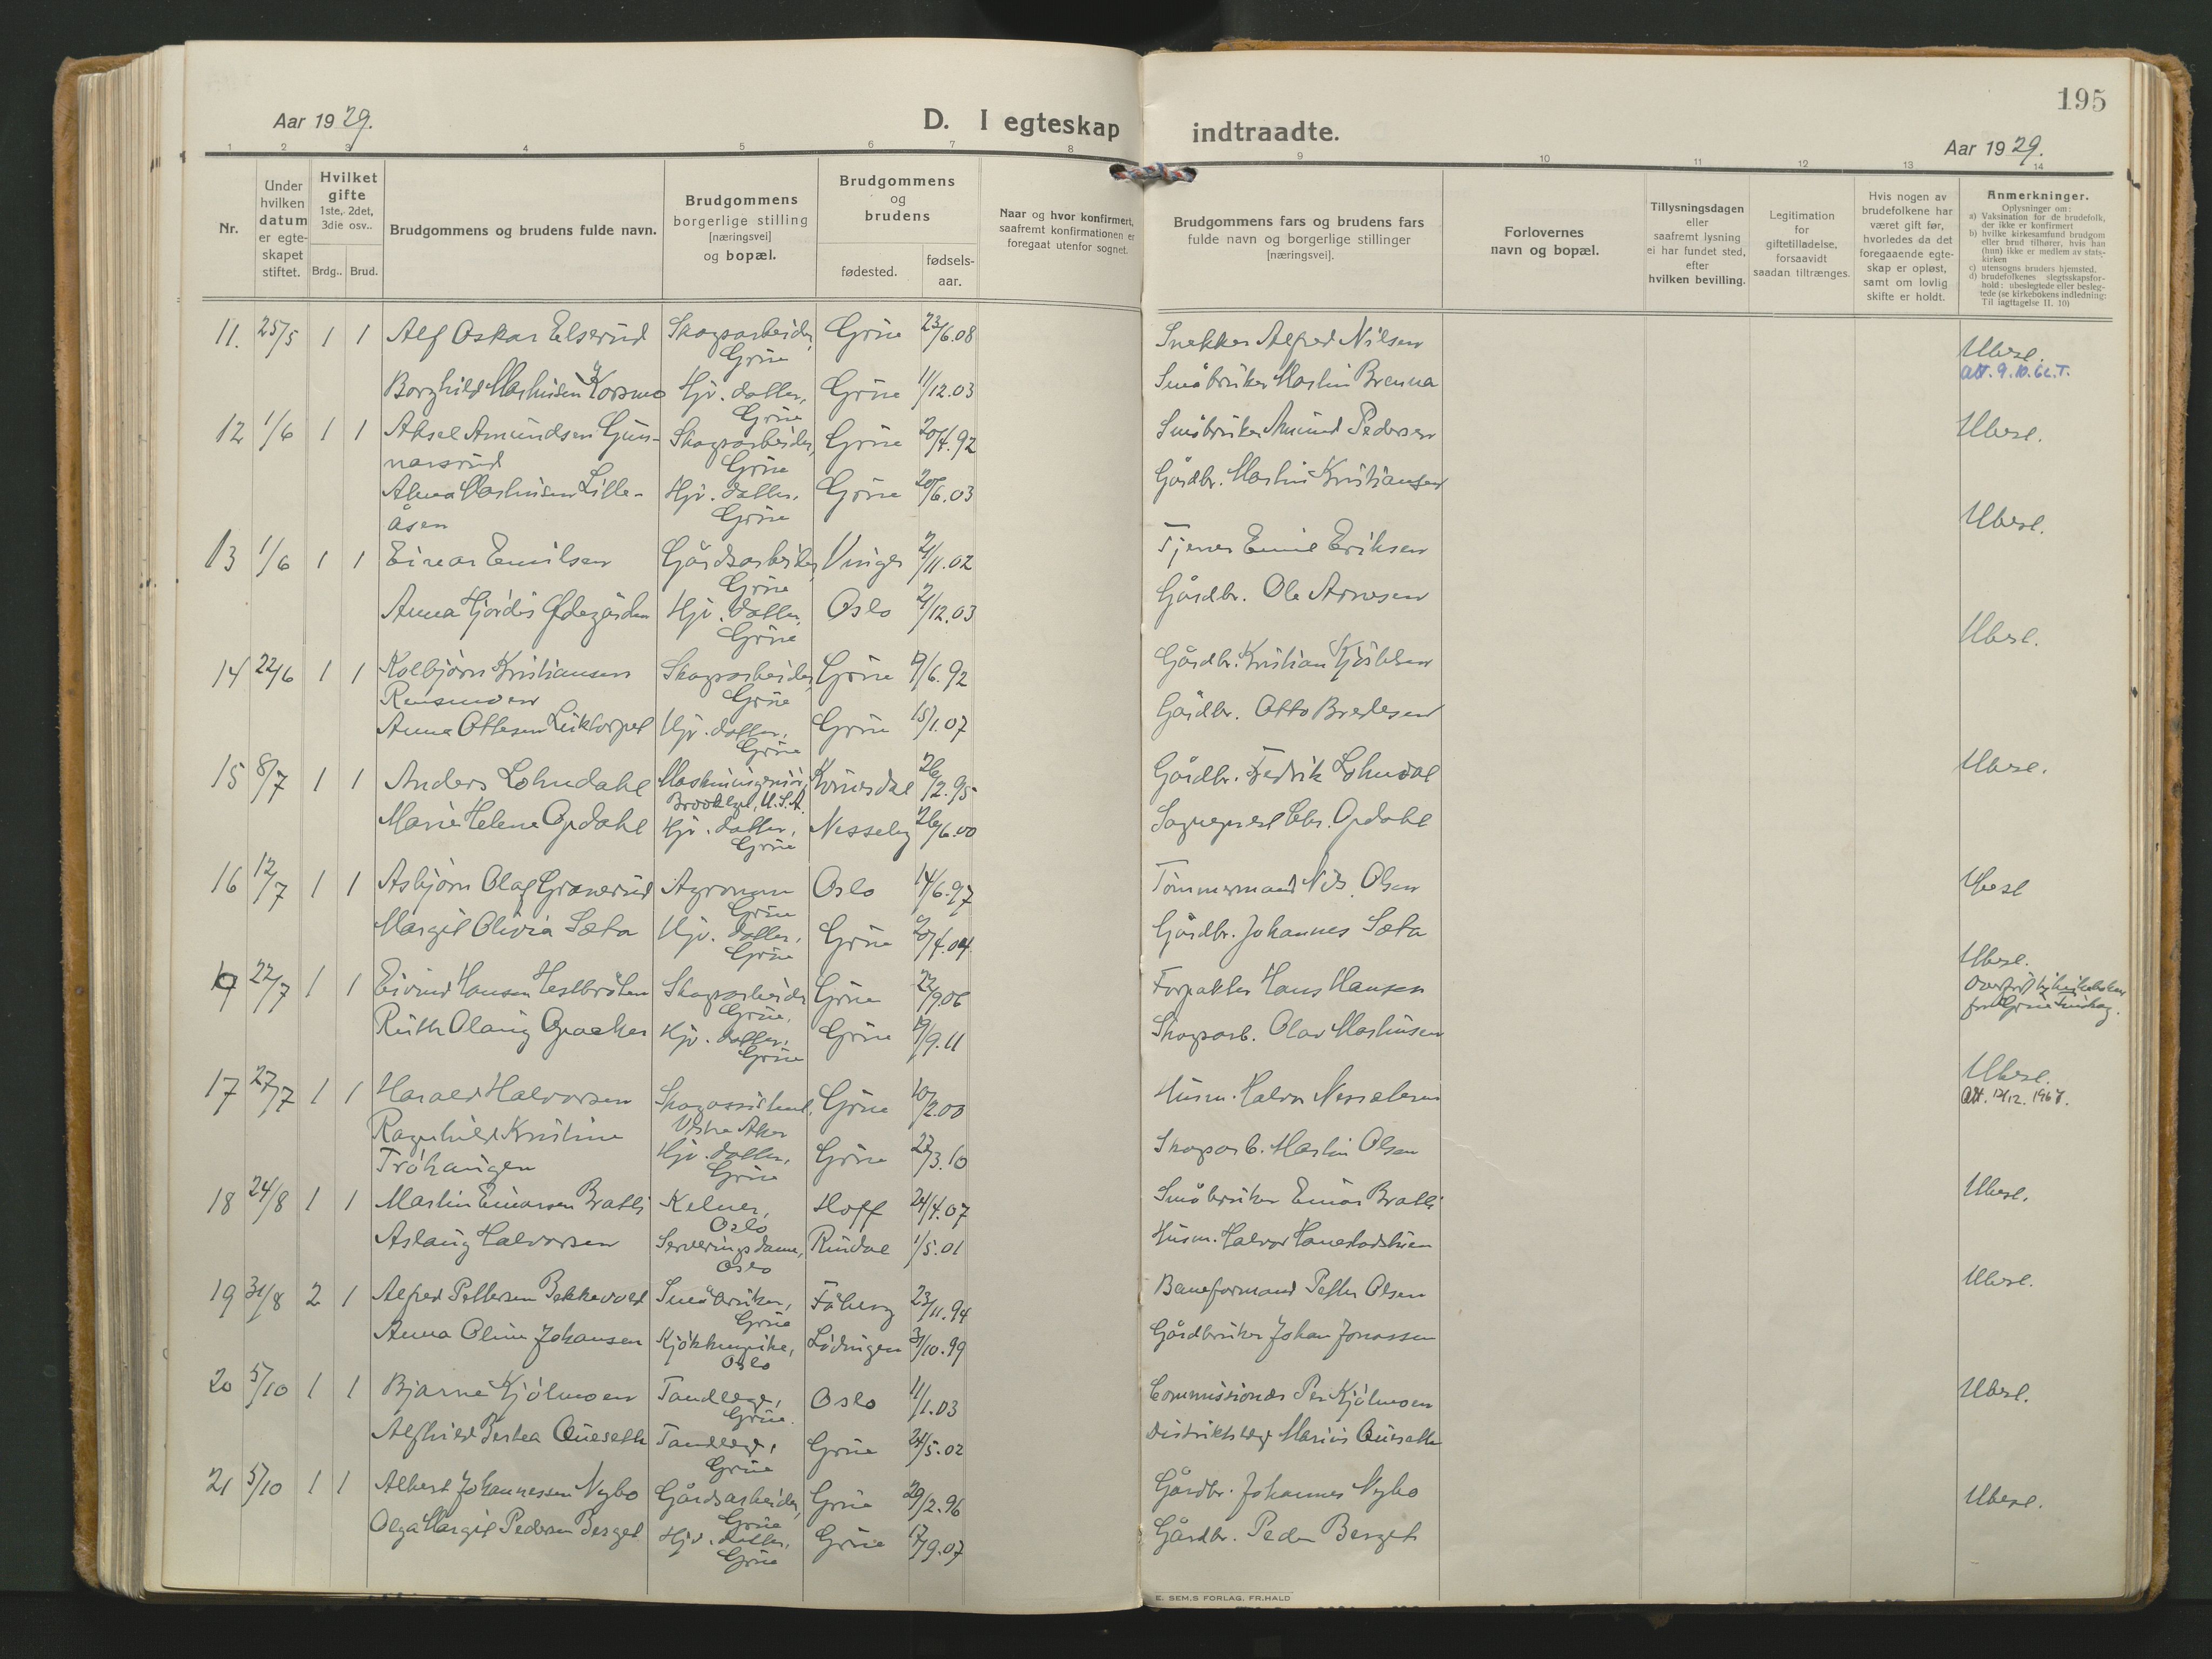 195
Aar 1929.
D. I egteskap indtraadte.
Aar 1929.
1 2 3 4 5 6 7 8 9 10 11 12 13 14
Nr.
Under hvilken datum er egteskapet stiftet.
Hvilket gifte
1ste, 2det, 3die osv..
Brdg.. Brud.
Brudgommens og brudens fulde navn.
Brudgommens borgerlige stilling [næringsvei] og bopæl.
Brudgommens og brudens
fødested.
fødsels-aar.
Naar og hvor konfirmert, saafremt konfirmationen er foregaat utenfor sognet.
Brudgommens fars og brudens fars
fulde navn og borgerlige stillinger
[næringsvei].
Forlovernes
navn og bopæl.
Tillysningsdagen
eller
saafremt lysning
ei har fundet sted,
efter
hvilken bevilling.
Legitimation
for
giftetilladelse,
forsaavidt
saadan tiltrænges.
Hvis nogen av
brudefolkene har
været gift før,
hvorledes da det
foregaaende egte-
skap er opløst,
samt om lovlig
skifte er holdt.
Anmerkninger.
Oplysninger om:
a) Vaksination for de brudefolk,
der ikke er konfirmert
b) hvilke kirkesamfund brudgom
eller brud tilhører, hvis han
(hun) ikke er medlem av stats-
kirken
c) utensogns bruders hjemsted.
d) brudefolkenes slegtsskapsfor-
hold: ubeslegtede eller besleg-
tede (se kirkebokens indledning:
Til iagttagelse II. 10)
11. 25/5 1 1 Alf Oskar Elserud Skogsarbeider, Grue Grue 23/6.08 Snekker Alfred Nilsen Ubesl.
Borghild Mathisen Korsmo Hjv. datter, Grue Grue 11/12.03 Småbruker Martin Brenna
12 1/6 1 1 Aksel Amundsen Gunnarsrud Skogsarbeider, Grue Grue 20/4.92 Småbruker Amund Pedersen Ubesl.
Alma Mathisen Lilleåsen Hjv. datter, Grue Grue 20/6.03 Gårdbr. Martin Kristiansen
13 1/6 1 1 Einar Emilsen Gårdsarbeider, Grue Vinger /11.02 Tjener Emil Eriksen Ubesl.
Anna Hjørdis Ødegården Hjv. datter, Grue Oslo /12.03 Gårdbr. Ole Arnesen
14 22/6 1 1 Kolbjørn Kristiansen Skogsarbeider, Grue Grue 9/6.92 Gårdbr. Kristian Ubesl.
Anna Ottesen Hjv. datter, Grue Grue 15/1.07 Gårdbr. Otto Bredesen
15 8/7 1 1 Anders Lohndahl Maskiningeniør, Brooklyn, U.S.A. Kvinesdal 26/2.95 Gårdbr. Fredrik Lohndal Ubesl.
Marie Helene Opdahl Hjv. datter, Grue Nesseby 26/6.00 Sogneprest Chr. Opdahl
16 12/7 1 1 Asbjørn Olaf Granerud Agronom Grue Oslo 14/6.97 Tømmermand Nils Olsen Ubesl
Margit Olivia Sæta Hjv. datter, Grue Grue 20/4.04 Gårdbr. Johannes Sæta
22/7 1 1 Eivind Hansen Hestbråten Skogsarbeider Grue, Grue 22/9 06 Forpakter Hans Hansen Ubesl.
Ruth Olaug Opaaker Hjv. datter, Grue Grue 19/9.11 Skogsarb. Olav Mathisen
17 27/7 1 1 Harald Halvorsen Skogassistent, Vestre Aker Grue 10/2.00 Husm. Halvor Ubesl.
Att. 12/12. 1967.
Ragnhild Kristine Tråhaugen Hjv. datter, Grue Grue 22/3.10 Skogsarb. Martin Olsen
18 24/8 1 1 Martin Einarsen Bratli Kelner, Oslo Hoff 24/4.07 Småbruker Einar Bratli Ubesl.
Aslaug Halvorsen Serveringsdame, Oslo Rindal 1/5.01 Husm. Halvor
19 31/8 2 1 Alfred Pettersen Bekkevold Småbruker, Grue Fåberg 23/11.94 Baneformand Petter Olsen Ubesl.
Anna Oline Johansen Kjøkkenpike, Oslo Lødingen 31/10.99 Gårdbruker Johan Jonassen
20 5/10 1 1 Bjarne Kjølmoen Tandlæge, Grue. Oslo 11/1.03 Commissionær Per Kjølmoen Ubesl.
Alfhild Bertea Queseth Tandlæge, Grue Grue 24/5.02 Distriktslæge Marius Queseth
21 5/10 1 1 Albert Johannessen Nybo Gårdsarbeider, Grue Grue 29/2.96 Gårdbr. Johannes Nybo Ubesl.
Olga Margit Pedersen Berget Hjv. datter, Grue Grue 17/9.07 Gårdbr. Peder Berget
E. SEM,S FORLAG. FR.HALD